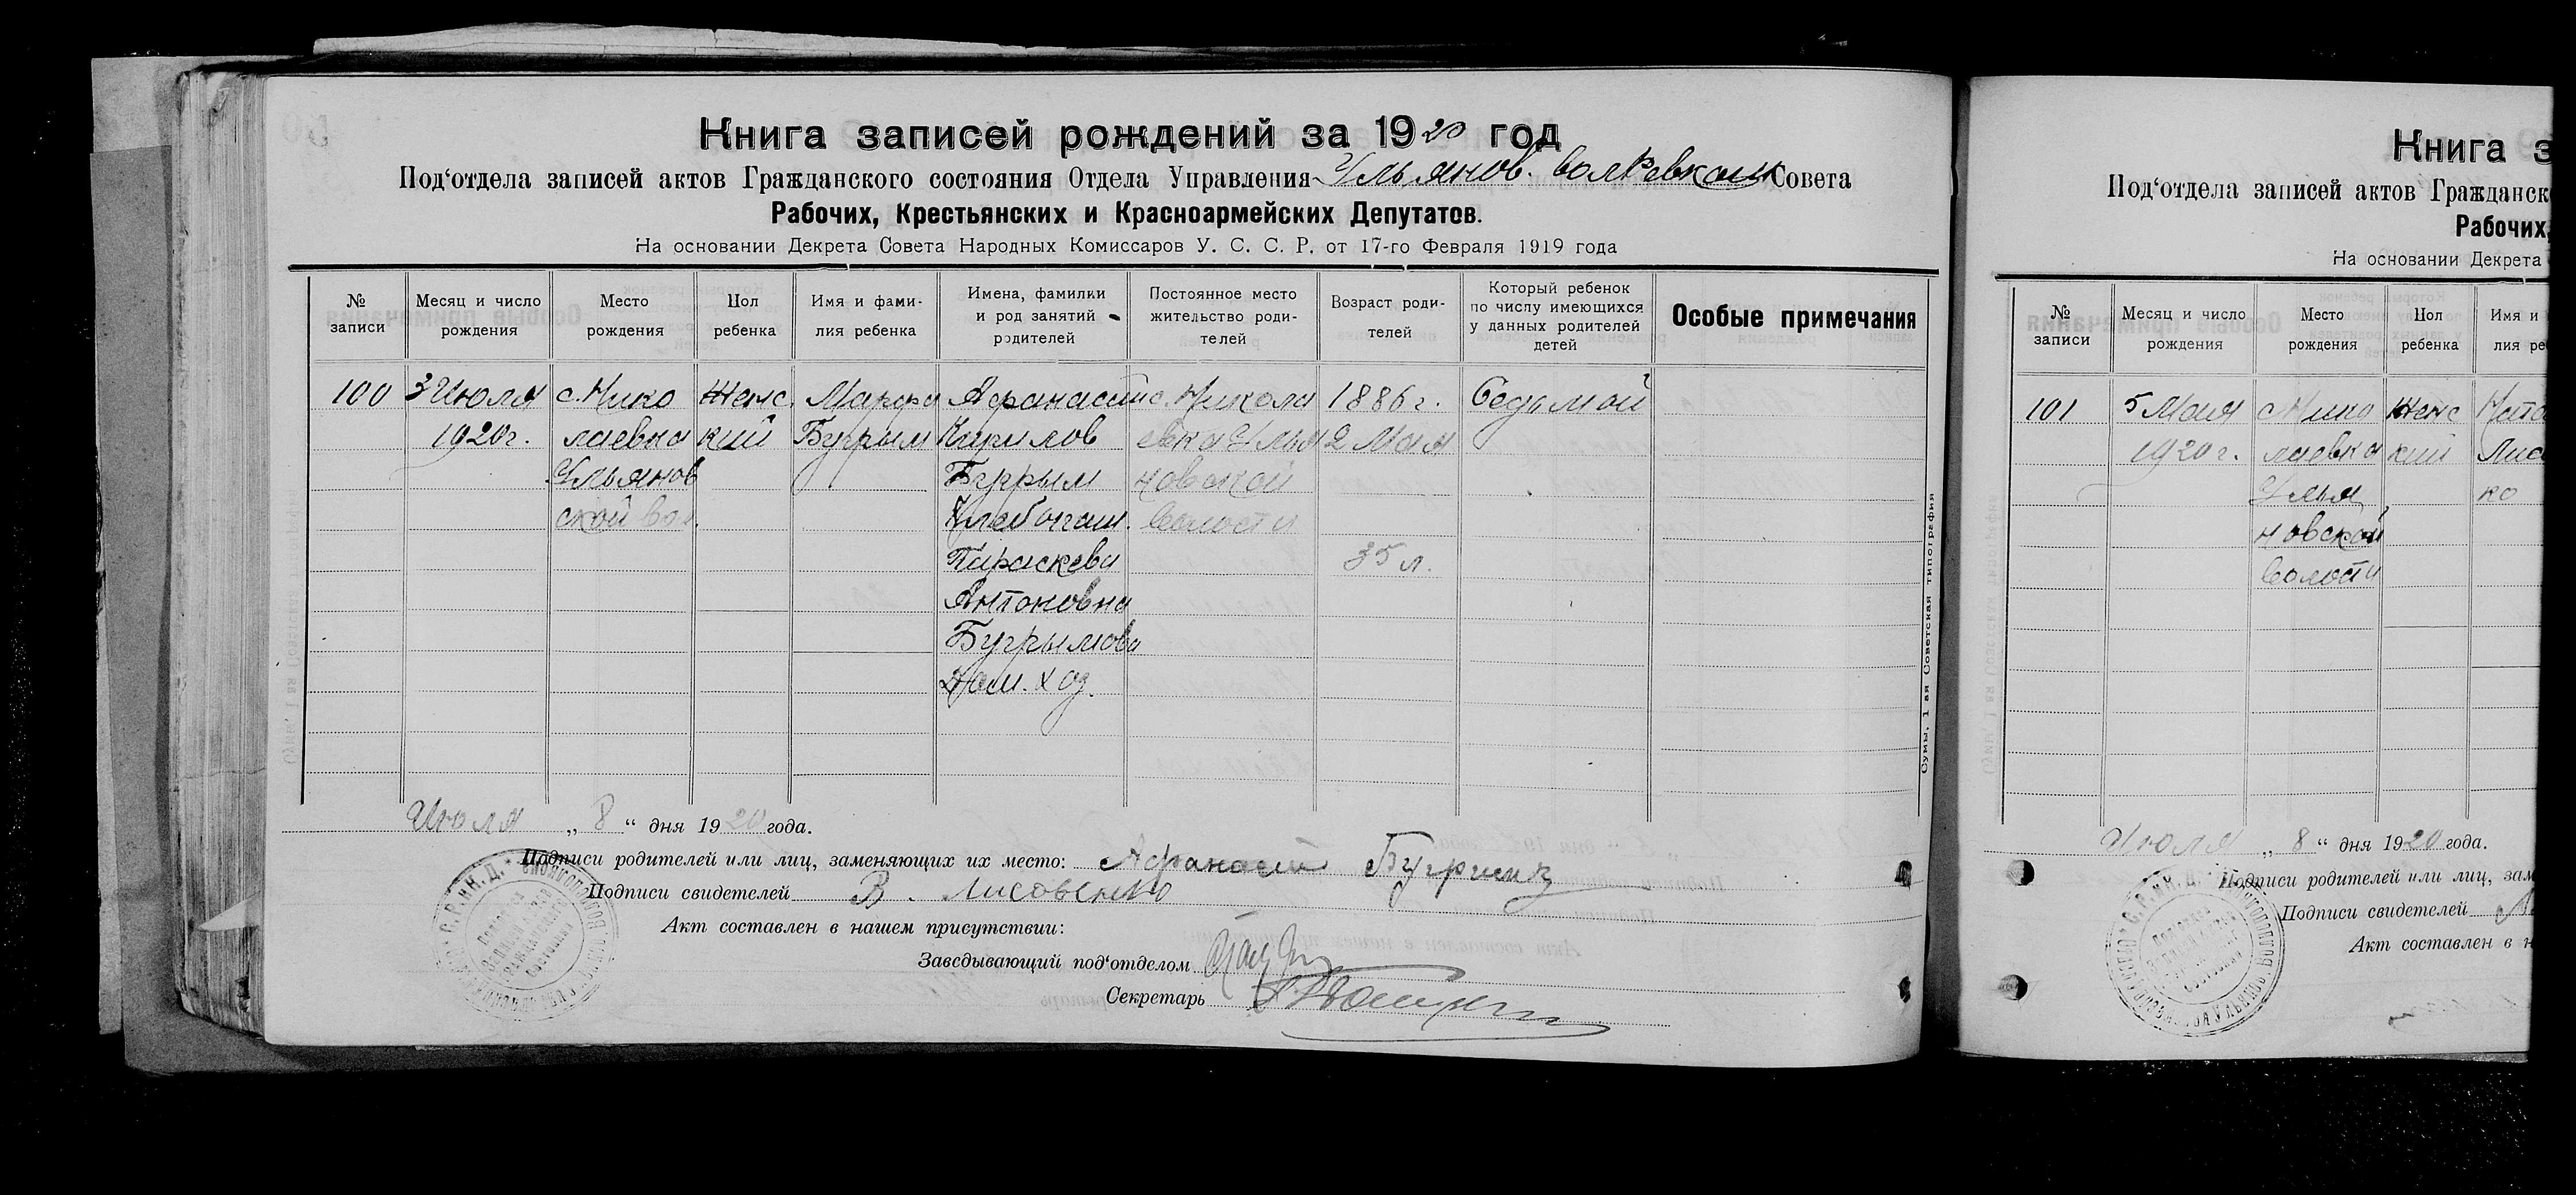 Книга записей рождений за 1920 год
Под‘отдела записей актов Гражданского состояния Отдела Управления Ульянов. волревком Совета
Рабочих, Крестьянских и Красноармейских Депутатов.
На основании Декрета Совета Народных Комиссаров У. С. С. Р. от 17-го Февраля 1919 года
№ записи
Месяц и число рождения
Место рождения
Пол ребенка
Имя и фами-
лия ребенка
Имена, фамилки
и род занятий
родителей
Постоянное место
жительство роди-
телей
Возраст роди-
телей
Который ребенок
по числу имеющихся
у данных родителей
детей
Особые примечания
100
3 Июля
1920 г.
с. Нико
лаевка
Ульянов
ской вол.
Женс
кий
Марфа
Бугрым
Афанасий
Кирилов
Бугрым
Хлебопаш.
Параскева
Антоновна
Бугрымова
Дом. хоз.
с. Никола
евка Улья
новской
волости
1886 г.
2 Мая
35 л.
Седьмой
Июля „ 8 “ дня 1920 года.
Подписи родителей или лиц, заменяющих их место: Афанасий Бугримъ
Подписи свидетелей В. Лисовенко
Акт составлен в нашем присутствии:
Заведывающий под‘отделом
Секретарь
Сумы, 1 ая Советская типография
Книга з
Под‘отдела записей актов Гражданск
Рабочих,
На основании Декрета
№
записи
Месяц и число
рождения
Место
рождения
Пол
ребенка
Имя и
лия ре
101
5 Мая
1920 г.
с Нико
лаевка
Улья
новской
волости
Женс
кий
Лис
ко
Июля „ 8 “ дня 1920 года.
Подписи родителей или лиц, зам
Подписи свидетелей
Акт составлен в н